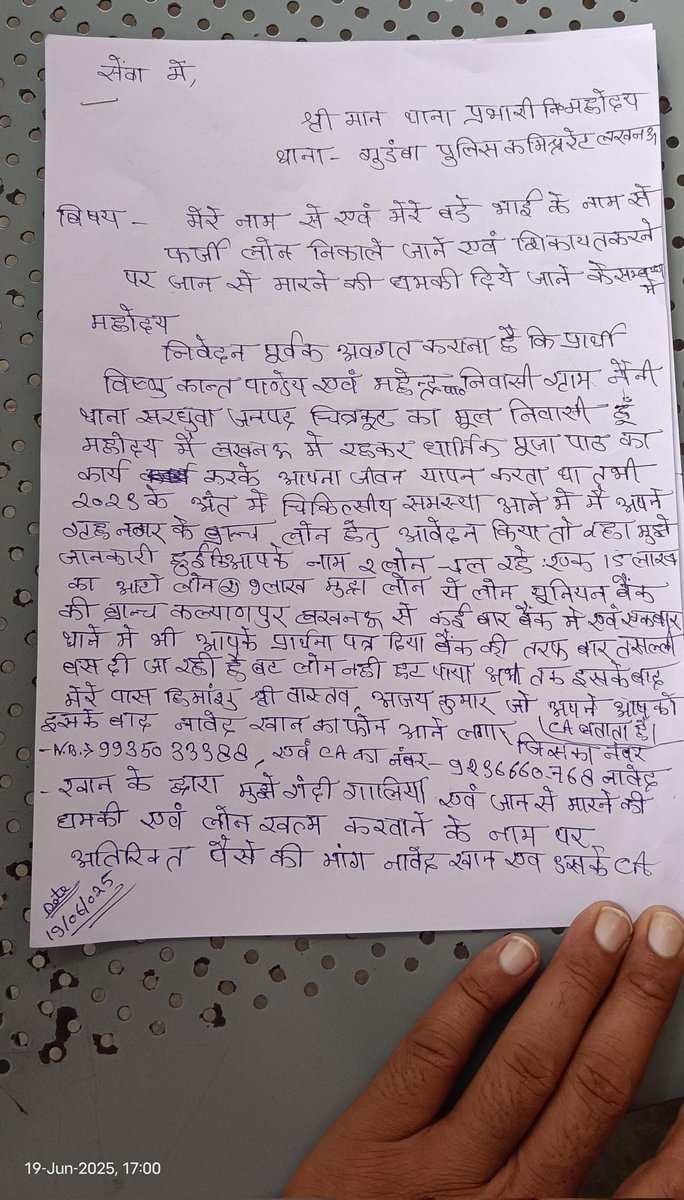 सेंवा में,
श्री मान थाना प्रभारी महोदय
थाना - गुडंबा पुलिस कमिश्नरेट लखनऊ
बिषय - मेरे नाम से एवं मेरे बडे भाई के नाम से
फर्जी लोन निकाले जाने एवं शिकायत करने
पर जान से मारने की धमकी दिये जाने के सम्बन्ध में
महोदय
निवेदन पूर्वक अवगत कराना है कि प्रार्थी
विष्णु कान्त पाण्डेय एवं महेन्द्र निवासी ग्राम नैनी
थाना सरधुवा जनपद चित्रकूट का मूल निवासी हूँ
महोदय मैं लखनऊ में रहकर धार्मिक पूजा पाठ का
कार्य करके आपना जीवन यापन करता था तभी
के अंत में चिकित्सीय समस्या आने में मैं अपने
ग्रह नगर के ब्रान्च लोन हेतु आवेदन किया तो वहा मुझे
जानकारी हुई कि आपके नाम 2 लोन चल रहे एक 15 लाख
का आटो लोन 9 लाख मुद्रा लोन ये लोन यूनियन बैंक
की ब्रान्च कल्याणपुर लखनऊ से कई बार बैंक में एवं एकबार
थाने में भी आपके प्रार्थना पत्र दिया बैंक की तरफ बार तसल्ली
बस दी जा रही है बट लोन नही हट पाया अभी तक इसके बाद
मेरे पास हिमांशु श्री वास्तव, अजय कुमार जो अपने आप को
इसके बाद नावेद खान का फोन आने लगा, (CA बताता है)
- N.B.→ 9935033388, एवं CA का नंबर- 9236660768 नावेद जिसका नंबर
- खान के द्वारा मुझे गंदी गालिया एवं जान से मारने की
धमकी एवं लोन खत्म करवाने के नाम पर
अतिरिक्त पैसे की मांग नावेद खान एव उसके CA
Date
19/06/025
19-Jun-2025, 17:00